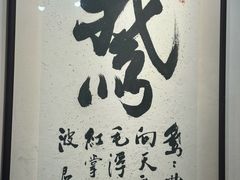 鵞
鵞〻
向天
毛浮
紅掌
波